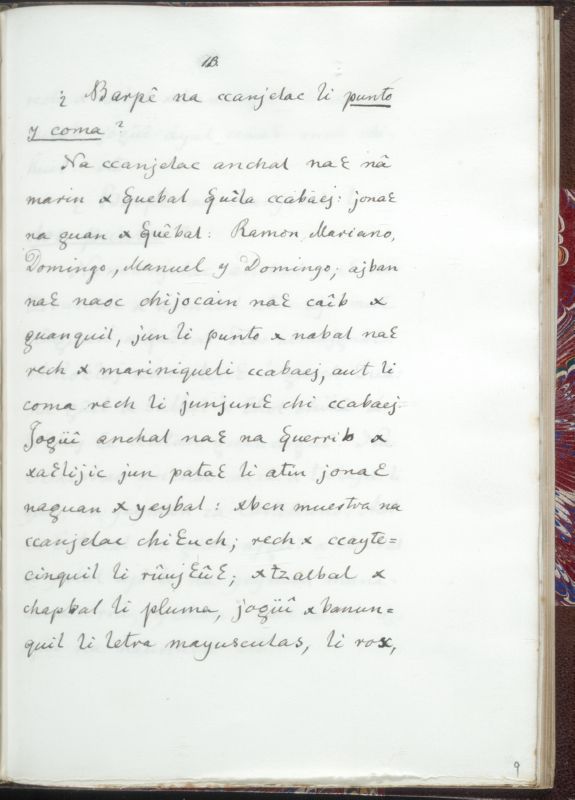 18.
¿ Barpê na ccanjelac li punto
y coma?
Na ccanjelac anchal naꜫ nâ
marin x ꜫuebal ꜫuila ccabaej: jonaꜫ
na guan x ꜫuêbal: Ramon, Mariano,
Domingo, Manuel y Domingo; ajban
naꜫ naoc chijocain naꜫ caîb x
guanquil, jun li punto x nabal naꜫ
rech x mariniqueli ccabaej, aut li
coma rech li junjunꜫ chi ccabaej.
Jogüî anchal naꜫ na ꜫuerrib x
xaꜫlijic jun pataꜫ li atin jonaꜫ
naguan x yeybal: xben muestra na
ccanjelac chiꜫuch; rech x ccayte=
cinquil li rûujꜫûꜫ; xtzalbal x
chapbal li pluma, jogüî xbanun=
quil li letra mayusculas, li rox,
9